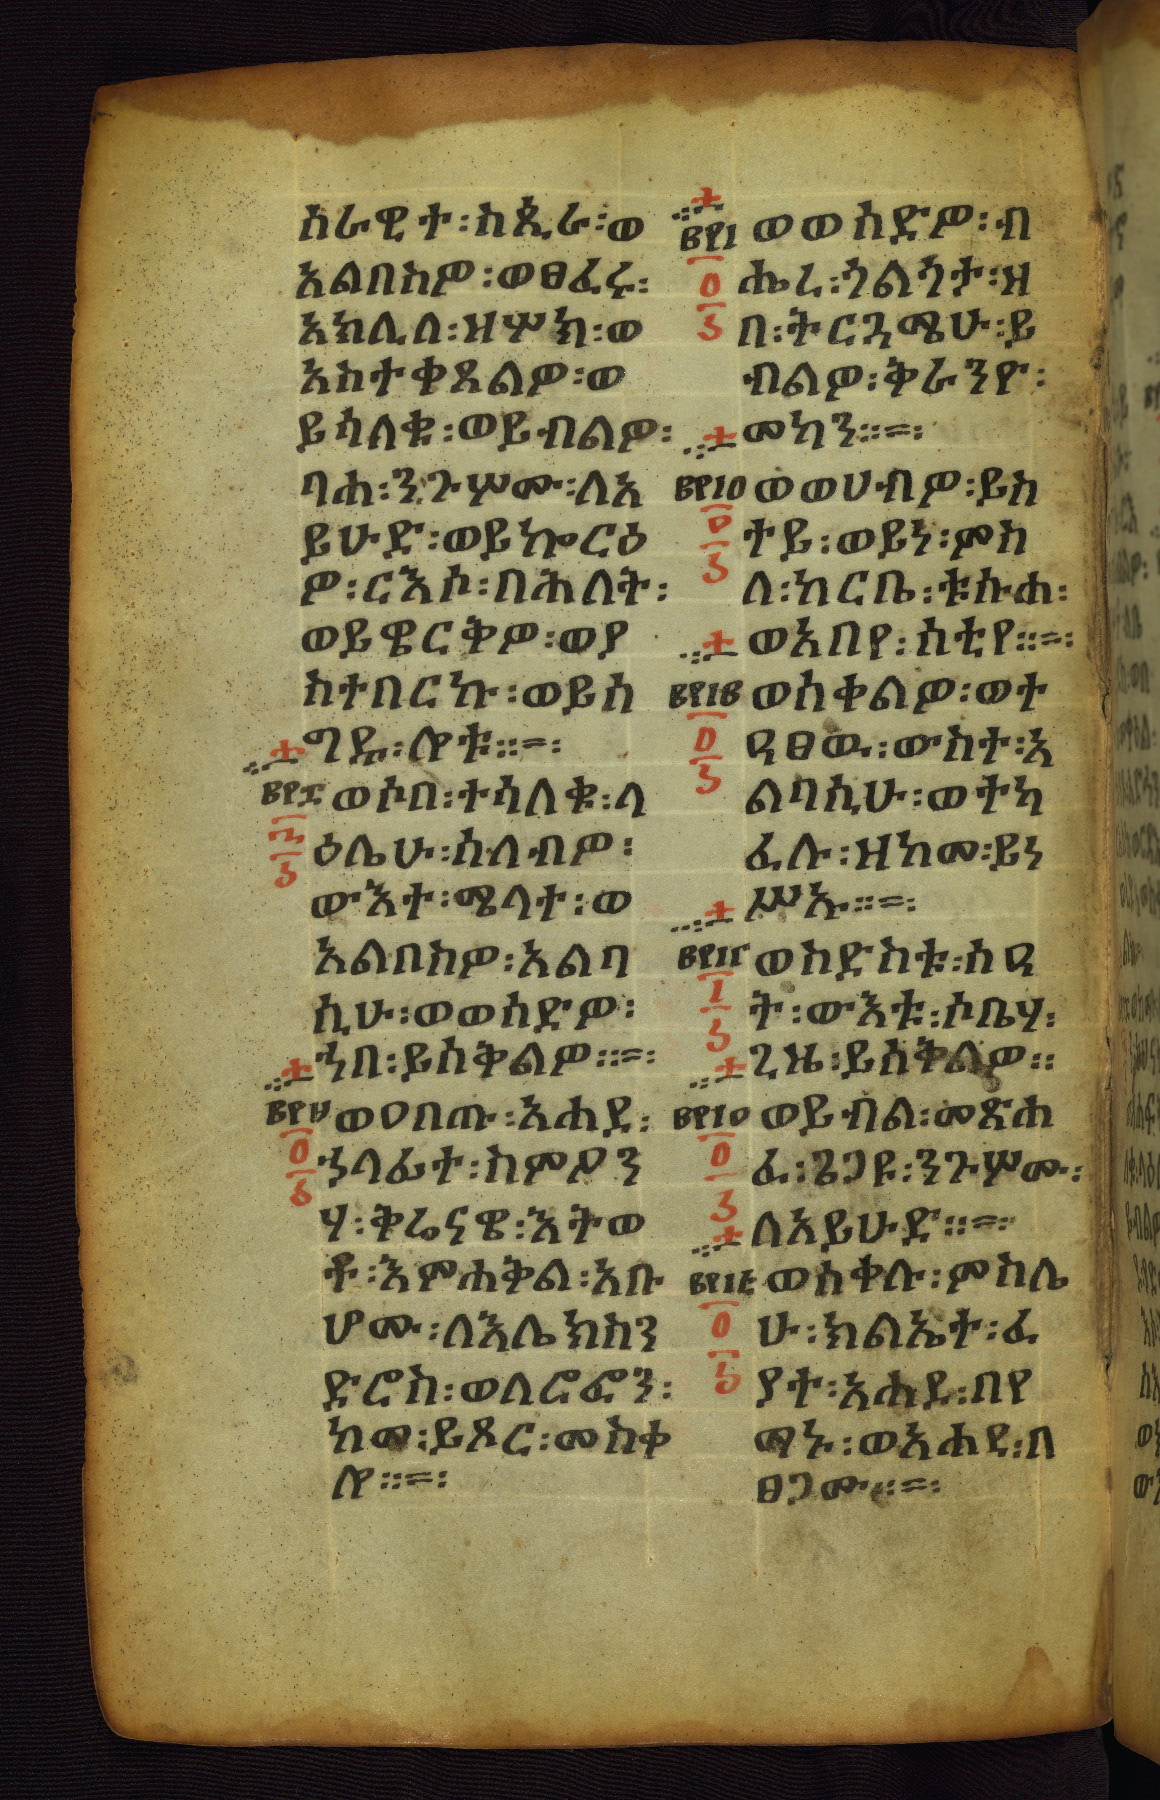 ሰራዊተ፡ሰጲራ፡ወ
አልበስዎ፡ወፀፈሩ፡
አክሊለ፡ዘሦክ፡ወ
አስተቀጸልዎ፡ወ
ይሳለቁ፡ወይብልዎ፡
ባሐ፡ንጉሦሙ፡ለአ
ይሁድ፡ወይኰርዕ
ዎ፡ርእሶ፡በሕለት፡
ወይዌርቅዎ፡ወያ
ስተበርኩ፡ወይሰ
ግዱ፡ሎቱ።=፡
፪፻፰ ወሶበ፡ተሳለቁ፡ላ
ዕሌሁ፡ሰለብዎ፡
ውእተ፡ሜላተ፡ወ
አልበስዎ፡አልባ
ሲሁ፡ወወሰድዎ፡
ኀበ፡ይሰቅልዎ።=፡
፪፻፱ ወዐበጡ፡አሐደ፡
ኀላፊተ፡ስምዖን
ሃ፡ቅሬናዌ፡እትወ
ቶ፡እምሐቅል፡አቡ
ሆሙ፡ለእሌክስን
ድሮስ፡ወለሮፎን፡
ከመ፡ይጾር፡መስቀ
ሎ።=፡
፪፻፲ ወወሰድዎ፡ብ
ሔረ፡ጎልጎታ፡ዘ
በ፡ትርጓሜሁ፡ይ
ብልዎ፡ቅራንዮ፡
መካን።=፡
፪፻፲፩ ወወሀብዎ፡ይስ
ተይ፡ወይነ፡ምስ
ለ፡ከርቤ፡ቱሱሐ፡
ወአበየ፡ሰቲየ።=፡
፪፻፲፪ ወሰቀልዎ፡ወተ
ዓፀዉ፡ውስተ፡አ
ልባሲሁ፡ወተካ
ፈሉ፡ዘከመ፡ይነ
ሥኡ።=፡
፪፻፲፫ ወስድስቱ፡ሰዓ
ት፡ውእቱ፡ሶቤሃ፡
ጊዜ፡ይሰቅልዎ።
፪፻፲፬ ወይብል፡መጽሐ
ፈ፡ጌጋዩ፡ንጉሦሙ፡
ለአይሁድ።=፡
፪፻፲፭ ወሰቀሉ፡ምስሌ
ሁ፡ክልኤተ፡ፈ
ያተ፡አሐደ፡በየ
ማኑ፡ወአሐደ፡በ
ፀጋሙ።=፡